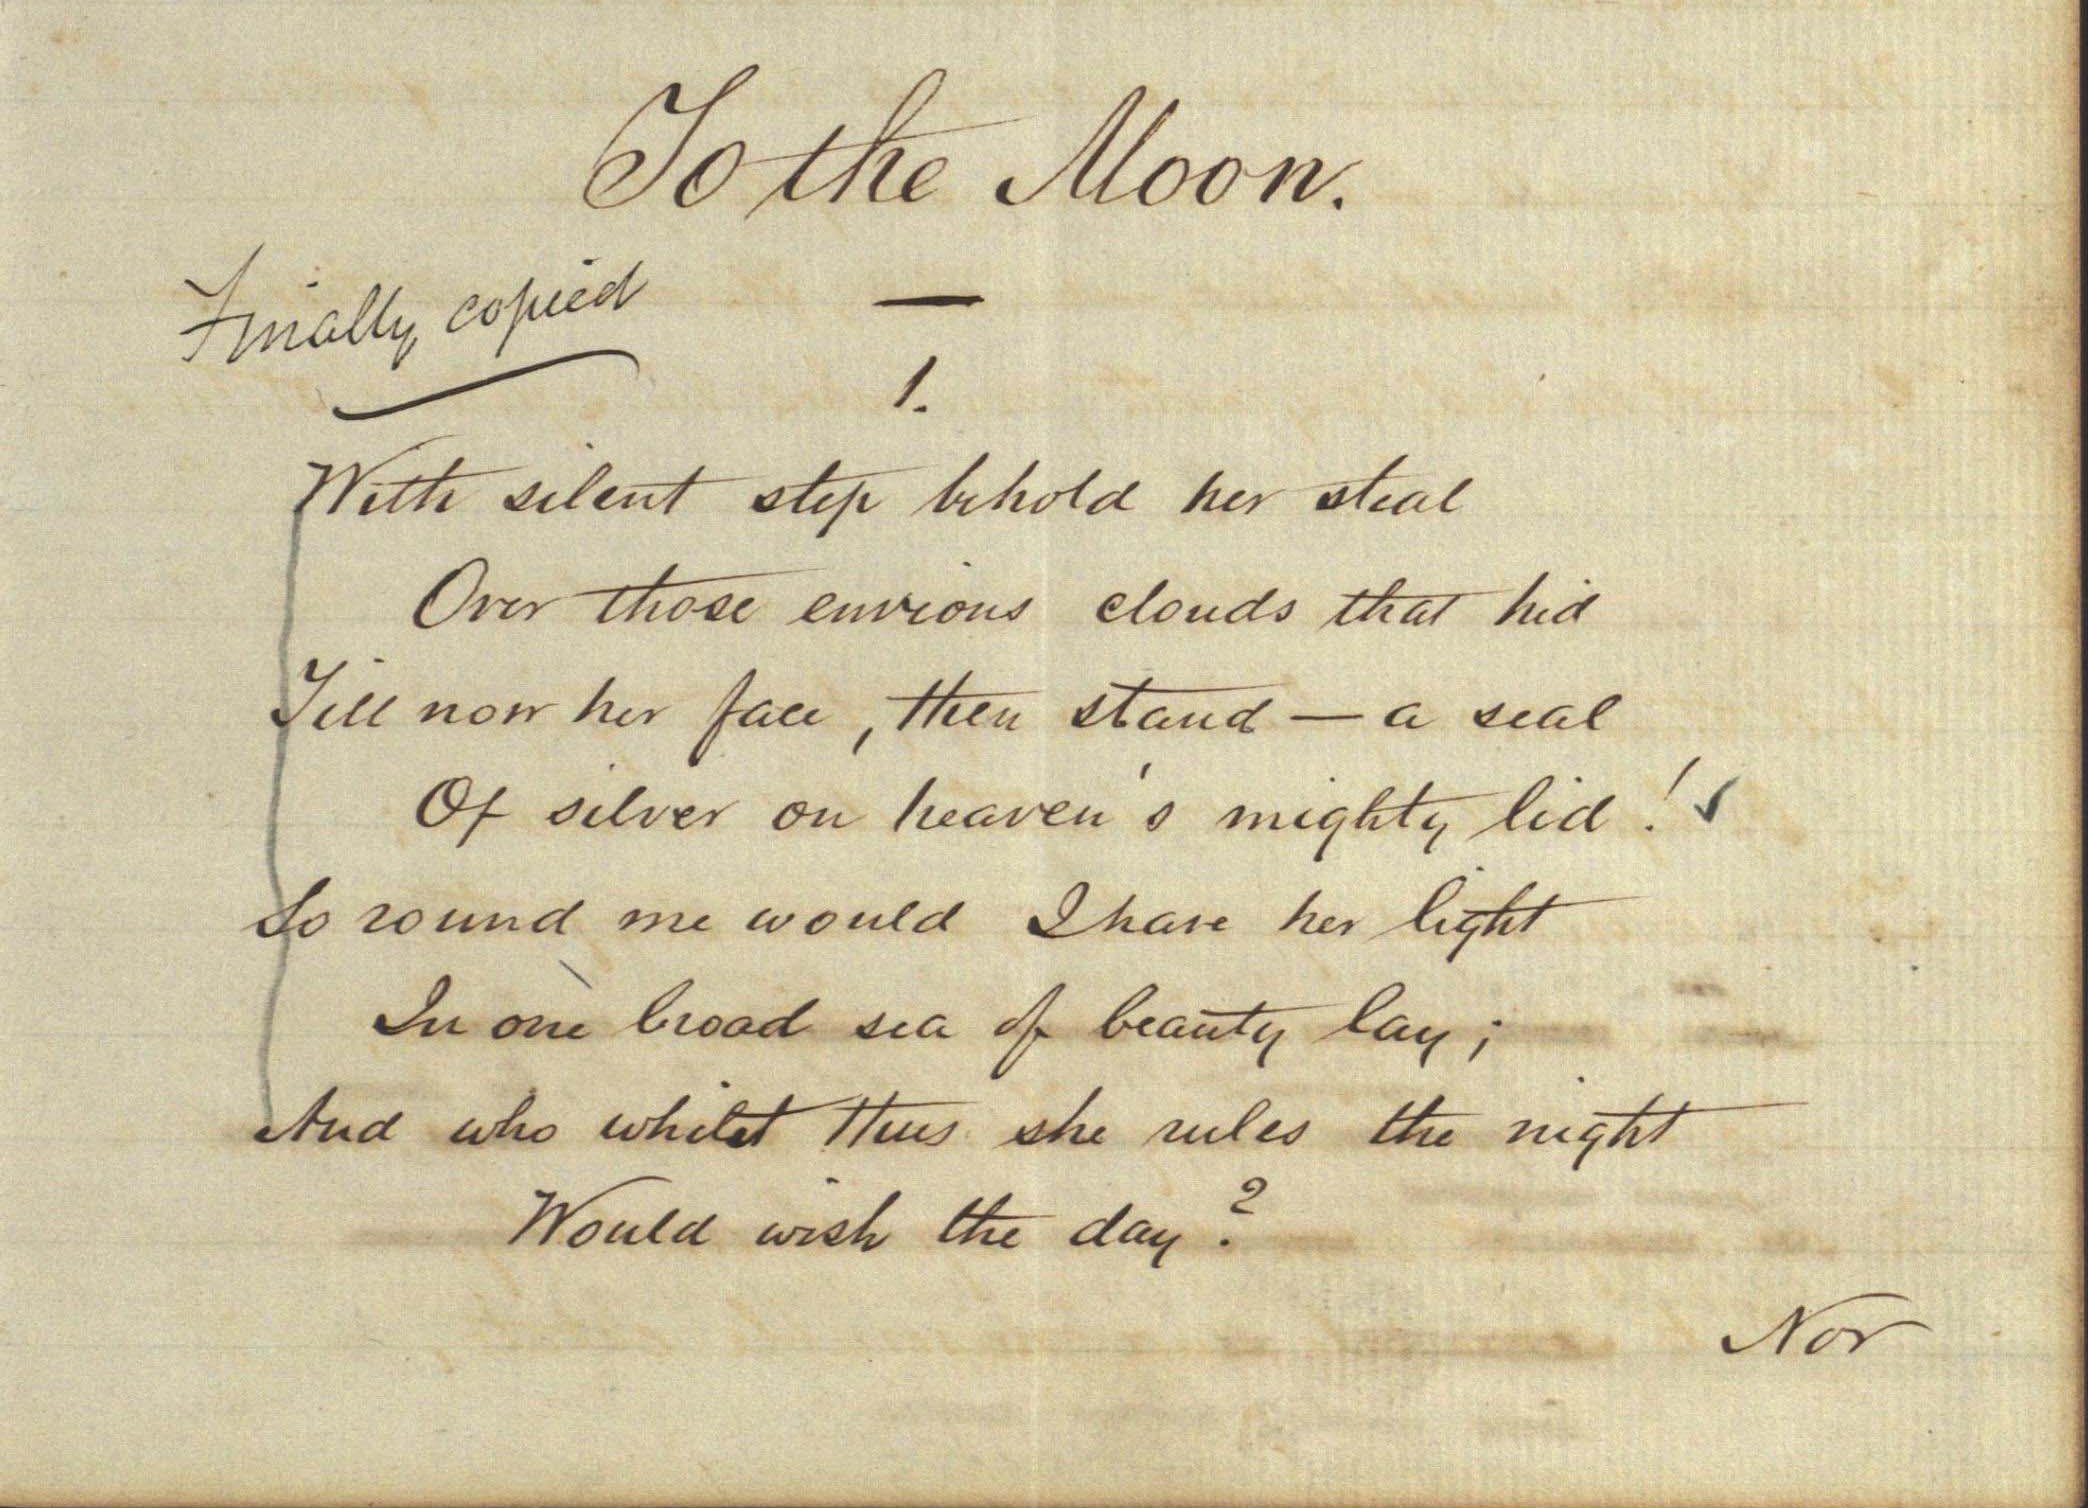 To the Moon.
Finally copied
1.
With silent step behold her steal
Over those envious clouds that hid
Till now her face, then stand — a seal
Of silver on heaven's mighty lid!
So round me would I have her light
In one broad sea of beauty lay;
And who whilst thus she rules the night
Would wish the day?
Nor